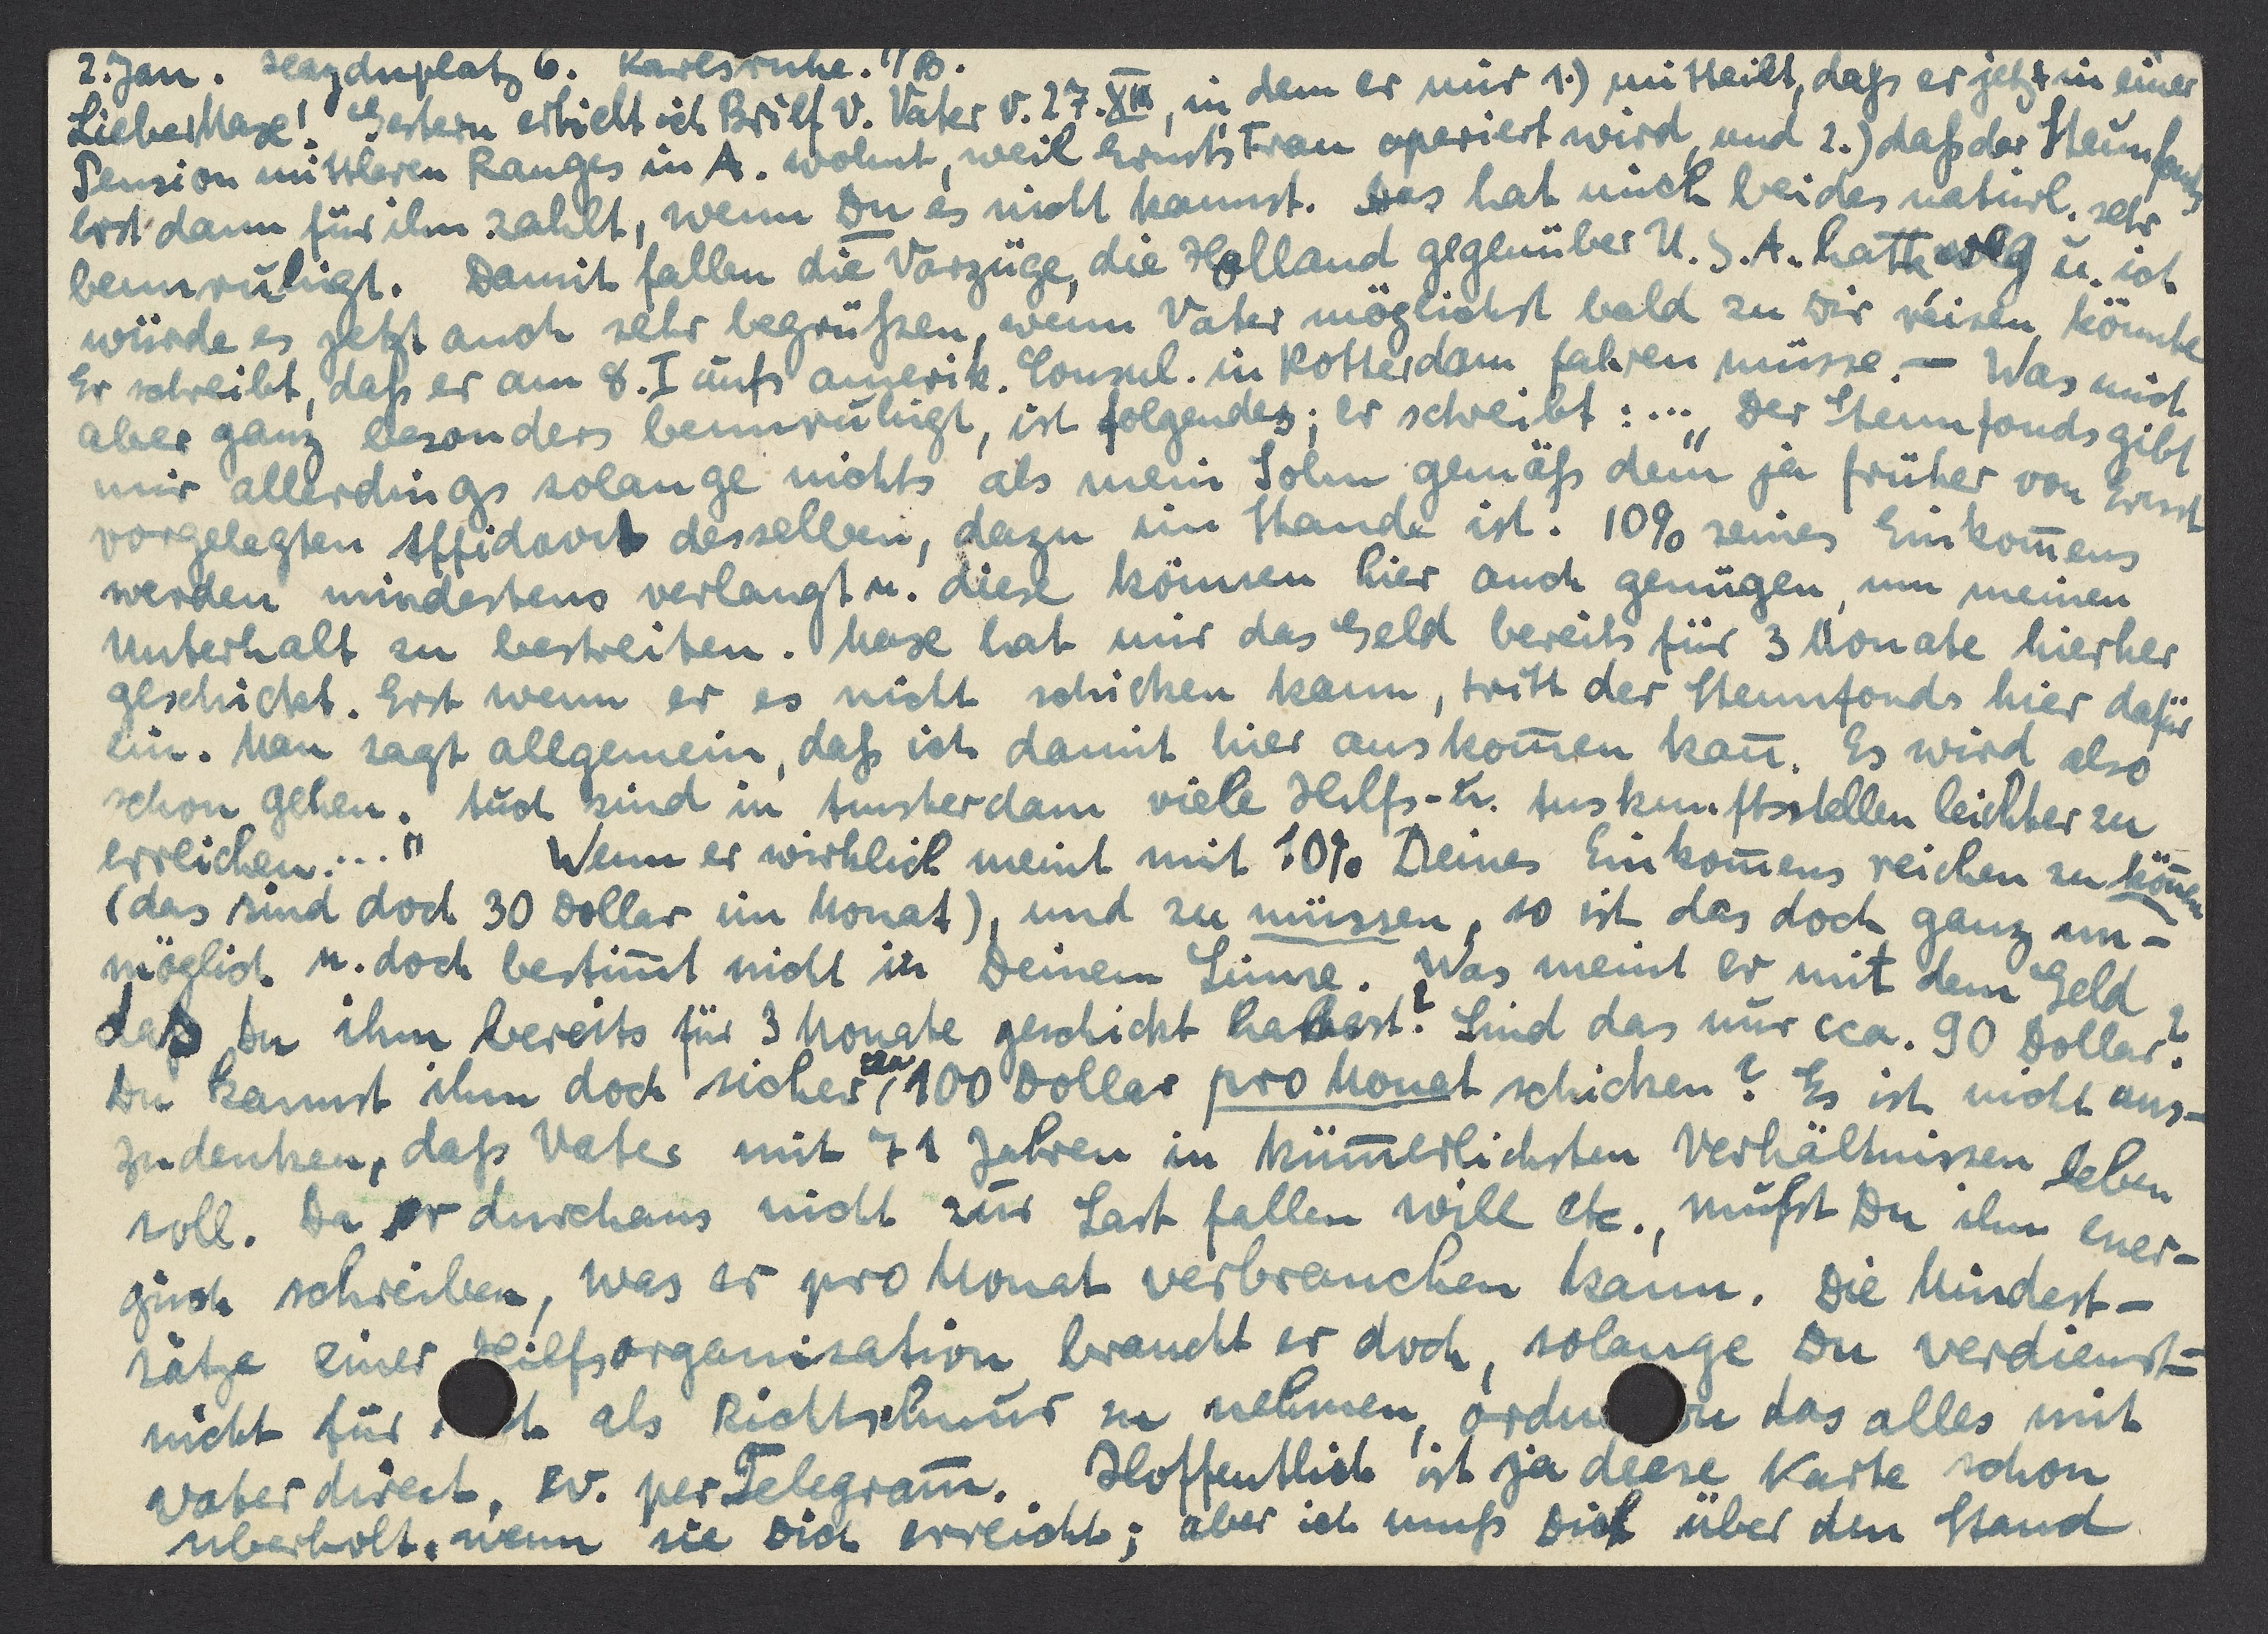 2. Jan. Haydnplatz 6. Karlsruhe. i/B.
Lieber Maxe! Gestern erhielt ich Brief v. Vater v. 27. XII, in dem er mir 1.) mitteilt, daß er jetzt in einer
Pension mittleren Ranges in A. wohnt, weil Ernsts Frau operiert wird, und 2.) daß der Steunfonds
erst dann für ihn zahlt, wenn Du es nicht kannst. Das hat mich beides natürl. sehr
beunruhigt. Damit fallen die Vorzüge, die Holland gegenüber U.S.A. hatte weg u. ich
würde es jetzt auch sehr begrüßen, wenn Vater möglichst bald zu Dir reisen könnte
Er schreibt, daß er am 8. I aufs amerik. Consul. in Rotterdam fahren müsse. – Was mich
aber ganz besonders beunruhigt, ist folgendes; er schreibt: ... „Der Steunfonds gibt
mir allerdings solange nichts als mein Sohn gemäß dem ja früher von Ernst
vorgelegten Affidavit desselben, dazu im Stande ist. 10% seines Einkom̄ens
werden mindestens verlangt u. diese können hier auch genügen, um meinen
Unterhalt zu bestreiten. Maxe hat mir das Geld bereits für 3 Monate hierher
geschickt. Erst wenn er es nicht schicken kann, tritt der Steunfonds hier dafür
ein. Man sagt allgemein, daß ich damit hier auskom̄en kan̄. Es wird also
schon gehen. Auch sind in Amsterdam viele Hilfs- u. Auskunftsstellen leichter zu
erreichen..." Wenn er wirklich meint mit 10% Deines Einkom̄ens reichen zu kön̄en
(das sind doch 30 Dollar im Monat), und zu müssen, so ist das doch ganz un-
möglich u. doch bestim̄t nicht in Deinem Sinne. Was meint er mit dem Geld
das Du ihm bereits für 3 Monate geschickt habest? Sind das nur cca. 90 Dollar?
Du kannst ihm doch sicher ca 100 Dollar pro Monat schicken? Es ist nicht aus-
zudenken, daß Vater mit 71 Jahren in küm̄erlichsten Verhältnissen leben
soll. Da er durchaus nicht zur Last fallen will etc., mußt Du ihm ener-
gisch schreiben, was er pro Monat verbrauchen kann. Die Mindest-
sätze einer Hilfsorganisation braucht er doch, solange Du verdienst-
nicht für sich als Richtschnur zu nehmen, ordne Du das alles mit
Vater direct, ev. per Telegram̄. Hoffentlich ist ja diese Karte schon
überholt, wenn sie Dich erreicht; aber ich muß Dich über den Stand